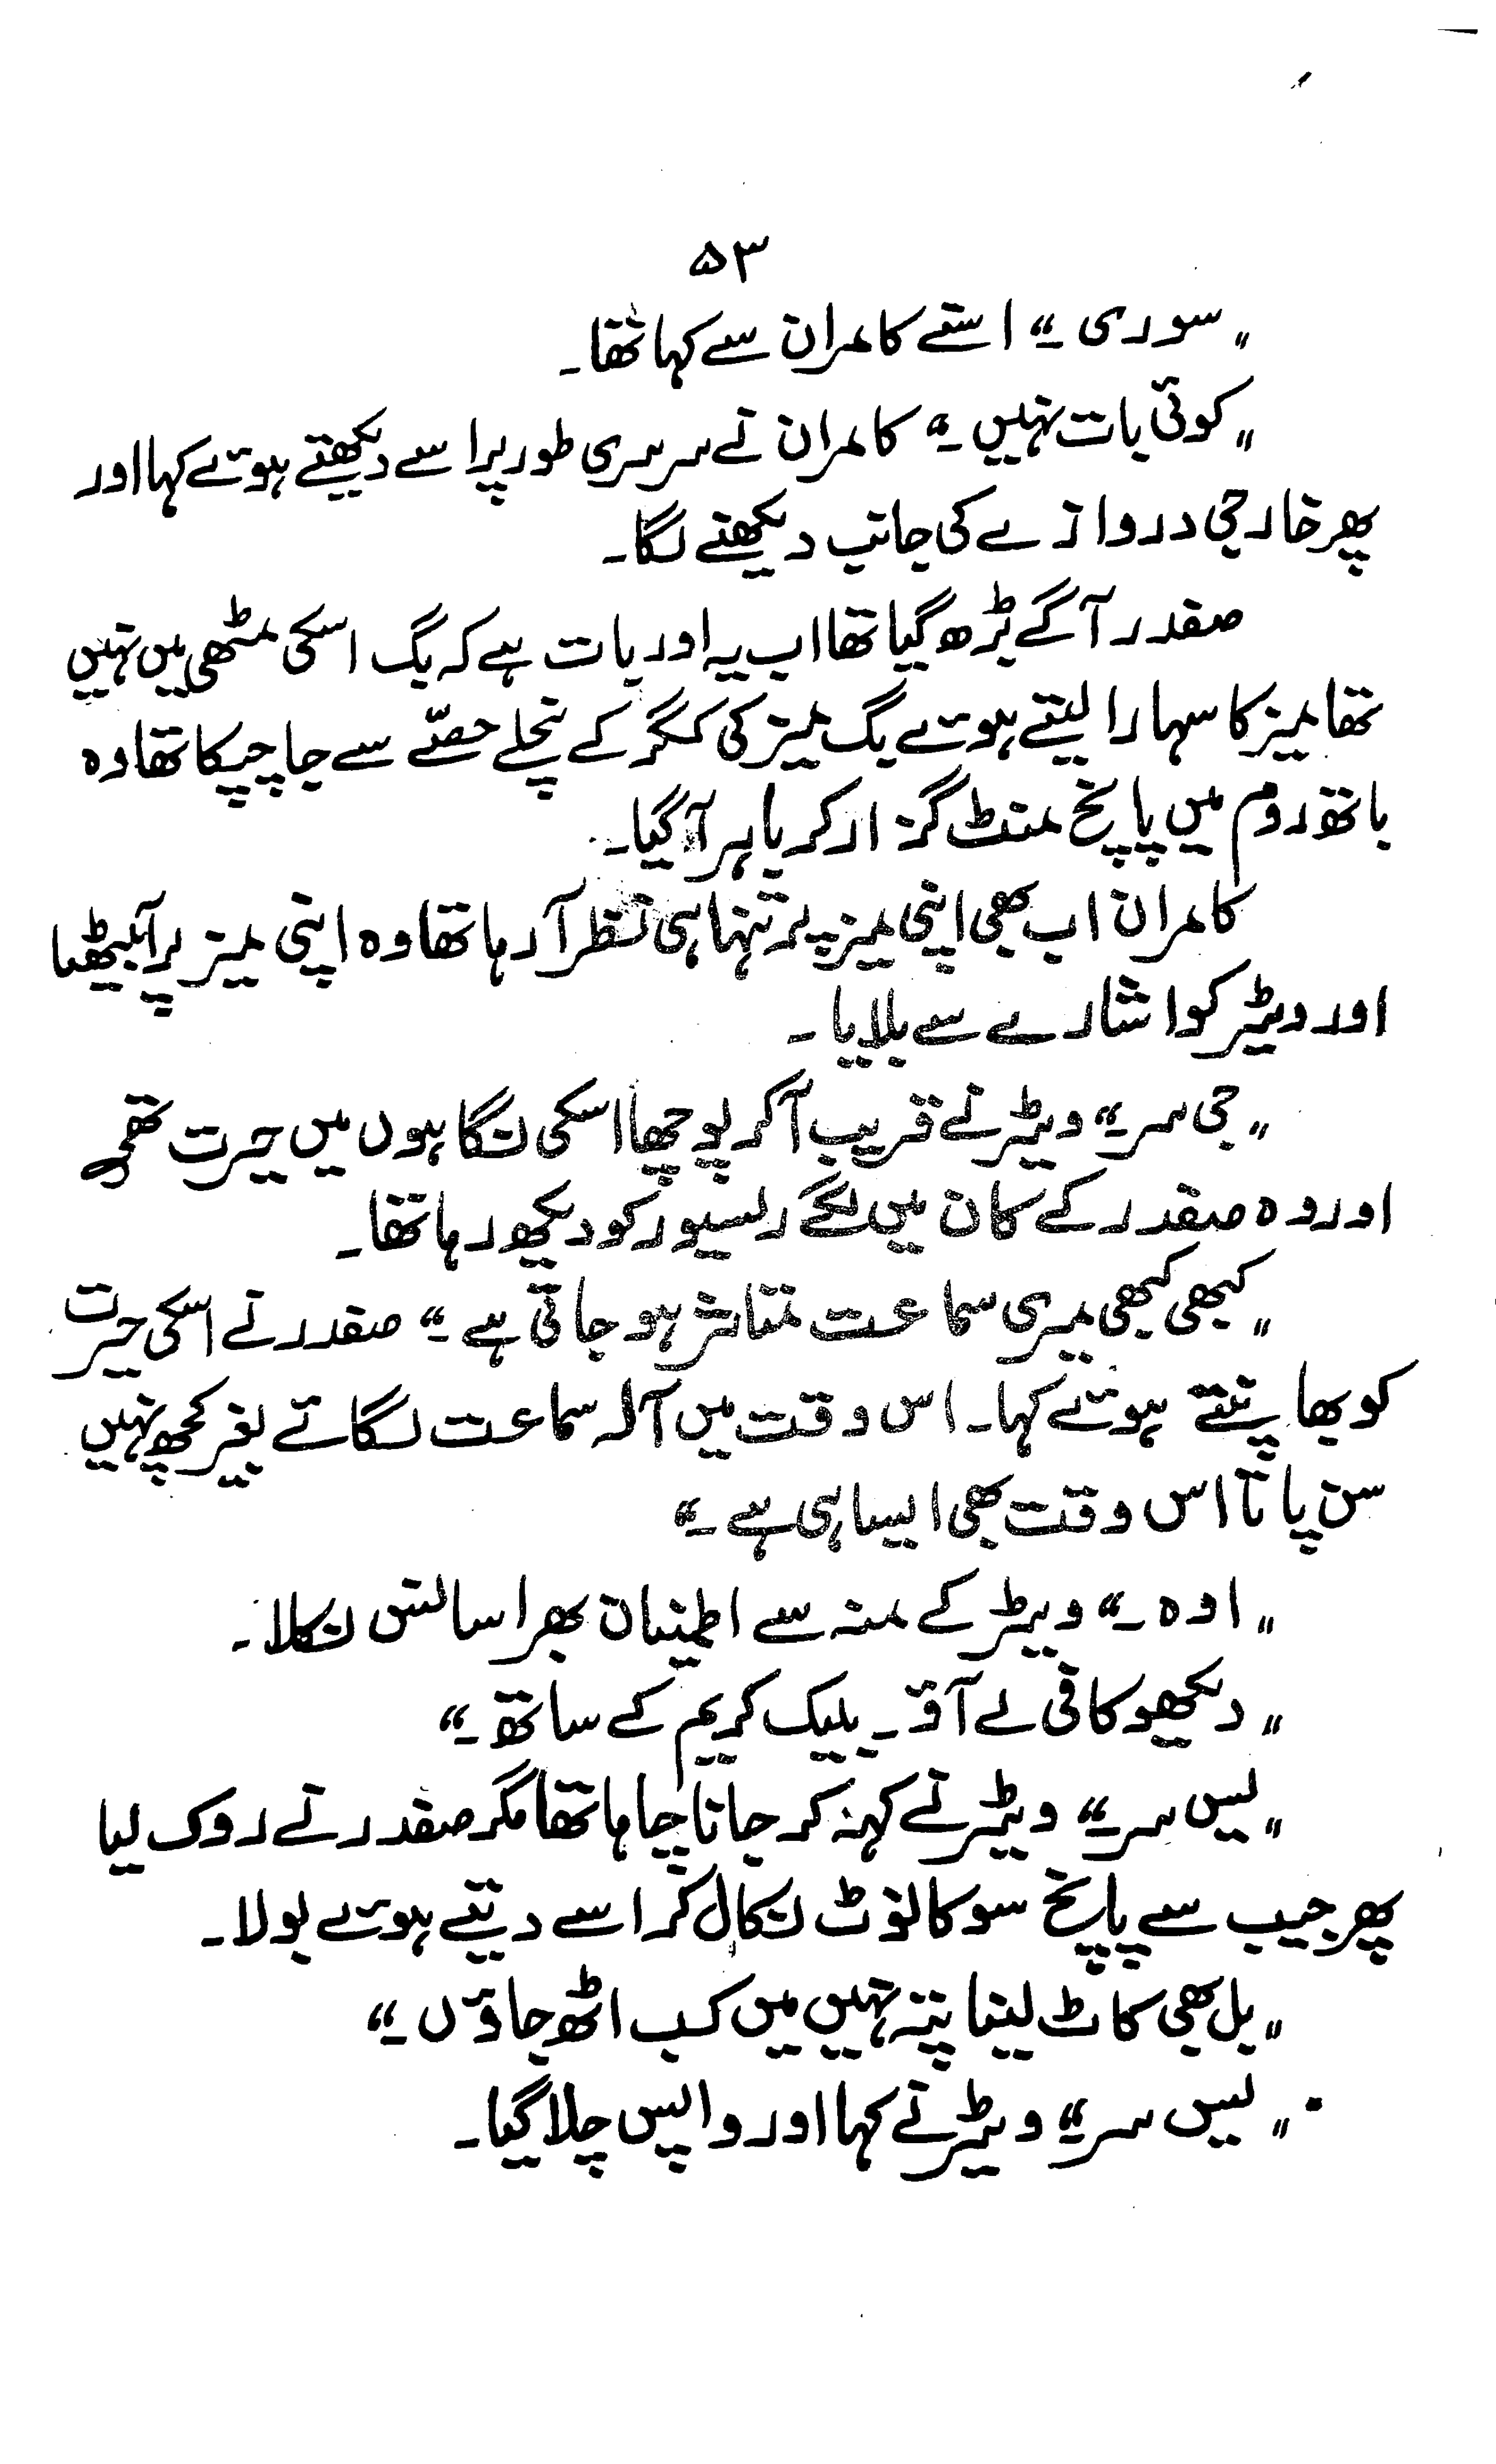 ۵۳
"سوری۔" اسنے کامران سے کہا تھا۔
"کوئی بات نہیں۔" کامران نے سرسری طور پر اسے دیکھتے ہوئے کہا اور
پھر خارجی دروازے کی جانب دیکھنے لگا۔
صفدر آگے بڑھ گیا تھا اب یہ اور بات ہے کہ بگ اسکی مٹھی میں نہیں
تھا میز کا سہارا لیتے ہوئے بگ میز کی کگر کے نچلے حصّے سے جا چپکا تھا وہ
باتھ روم میں پانچ منٹ گزار کر باہر آ گیا۔
کامران اب بھی اپنی میز پر تنہا ہی نظر آ رہا تھا وہ اپنی میز پر آ بیٹھا
اور ویٹر کو اشارے سے بلایا۔
"جی سر۔" ویٹر نے قریب آ کر پوچھا اسکی نگاہوں میں حیرت تھی
اور وہ صفدر کے کان میں لگے ریسیور کو دیکھ رہا تھا۔
"کبھی کبھی میری سماعت متاثر ہو جاتی ہے۔" صفدر نے اسکی حیرت
کو بھانپتے ہوئے کہا۔ اس وقت میں آلہ سماعت لگائے بغیر کچھ نہیں
سن پاتا اس وقت بھی ایسا ہی ہے۔"
"اوہ۔" ویٹر کے منہ سے اطمینان بھرا سانس نکلا۔
"دیکھو کافی لے آؤ۔ بلیک کریم کے ساتھ۔"
"یس سر۔" ویٹر نے کہہ کر جانا چاہا تھا مگر صفدر نے روک لیا
پھر جیب سے پانچ سو کا نوٹ نکال کر اسے دیتے ہوئے بولا۔
"بل بھی کاٹ لینا پتہ نہیں میں کب اٹھ جاؤں۔"
"یس سر۔" ویٹر نے کہا اور واپس چلا گیا۔